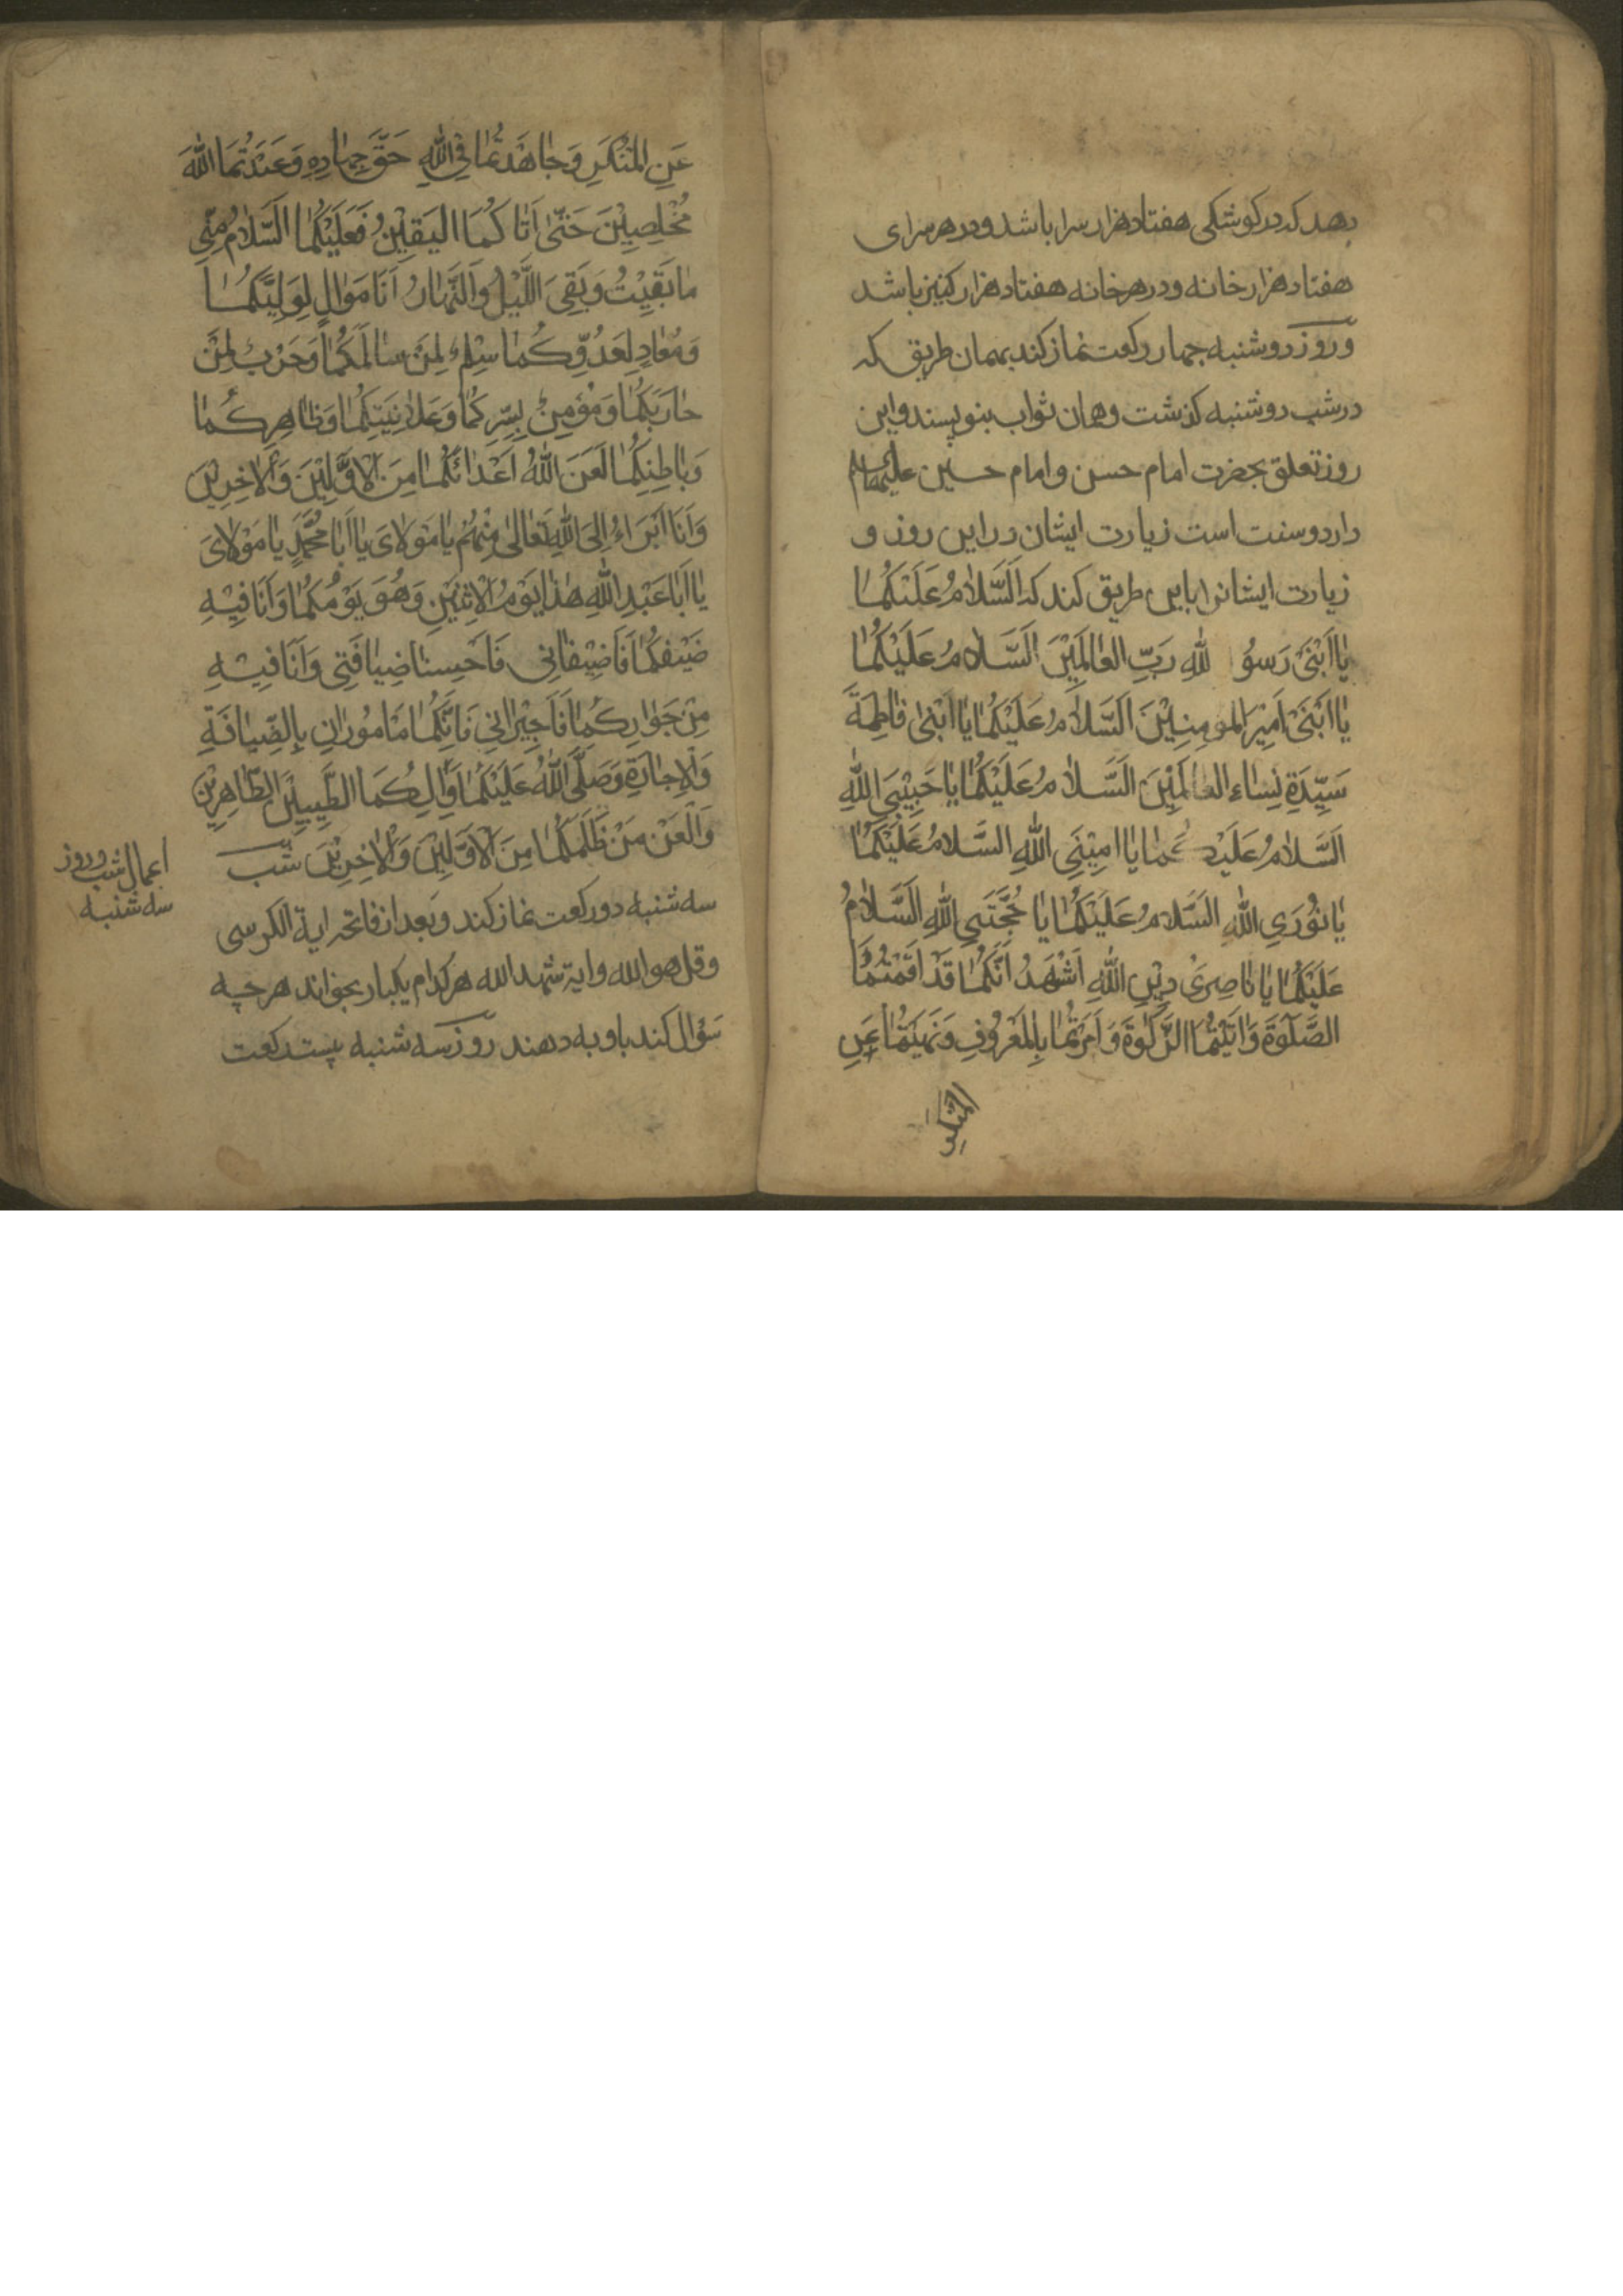 بدهد که در کوشکی هفتاد هزار سرا باشد و در هر سرای
هفتاد هزار خانه و در هر خانه هفتاد هزار کنیز باشد
و روز دوشنبه چهار رکعت نماز کند بهمان طریق که
در شب دوشنبه کذشت و همان ثواب بنویسند و این
روز تعلق بحضرت امام حسن و امام حسین علیهما السلام
دارد و سنت است زیارت ایشان در این روز و
زیارت ایشانرا باین طریق کند که اَلسَّلامُ عَلَیْکُمٰا
یٰا اَبْنَیْ رَسُو للهِ رَبِّ العٰالَمِیْنَ اَلسَّلامُ عَلَیْکُمٰا
یٰا اَبْنَیْ اَمِیْرَ المومِنِیْنَ اَلسَّلامُ عَلَیْکُمٰا یٰا اَبْنَیْ فٰاطِمَةَ
سَیِّدَةِ نِسٰاءِ العٰالَمِیْنَ اَلسَّلامُ عَلَیْکُمٰا یٰا حَبِیْبَیِ اللهِ
اَلسَّلامُ عَلَیْکُمٰا یٰا امِیْنَیِ اللهِ السَّلامُ عَلَیْکُمٰا
یٰا نُوْرَیِ اللهِ السَّلامُ عَلَیْکُمٰا یٰا حُجَّتَیِ اللهِ اَلسَّلامُ
عَلَیْکُمٰا یٰا نٰاصِرَیْ دِیْنِ اللهِ اَشْهَدُ اَنَّکُمٰا قَدْ اَقَمْتُمٰا
الصَّلٰوةَ وَاٰتَیْتُمَا الزَّکٰوةَ وَاَمَرْتُمٰا بِالمَعْرُوفِ وَنَهَیْتُمٰا عَنِ
المنکر
عَنِ المُنْکَرِ وَجٰاهَدْتُمٰا فِی اللهِ حَقَّ جِهٰادِهِ وَعَبَدْتُمَا اللهَ
مُخْلِصِیْنَ حَتّٰی اَتٰاکُمَا الیَقِیْنُ فَعَلَیْکُمٰا اَلسَّلامُ مِنّٰی
مٰا بَقِیْتُ وَبَقِیَ اللَّیْلُ وَالنَّهٰارُ اَنَا مَوٰالٍ لِوَلِیِّکُمٰا
وَمُعٰادٍ لِعَدُوِّکُمٰا سِلْمٌ لِمَنْ سٰالَمَکُمٰا وَحَرْبٌ لِمَنْ
حٰارَبَکُمٰا وَمُؤْمِنٌ بِسِرِّکُمٰا وَعَلانِیَتِکُمٰا وَظٰاهِرِکُمٰا
وَبٰاطِنِکُمٰا لَعَنَ اللهُ اَعْدٰائَکُمٰا مِنَ الاَوَّلِیْنَ وَالاٰخِرِیْنَ
وَاَنَا اَبْرَاءُ اِلَی اللهِ تَعٰالٰی مِنْهُمْ یٰا مَوْلایَ یٰا اَبٰا مُحَمَّدٍ یٰا مَوْلایَ
یٰا اَبٰا عَبْدِ اللهِ هٰذٰا یَوْمُ الاِثْنَیْنِ وَهُوَ یَوْمُکُمٰا وَاَنَا فِیْهِ
ضَیْفُکُمٰا فَاَضِیْفٰانِی فَاَحْسِنٰا ضِیٰافَتِی وَاَنَا فِیْهِ
مِنْ جَوٰارِکُمٰا فَاَجِیْرٰانِی فَاِنَّکُمٰا مٰامُوْرٰانِ بِالضِّیٰافَةِ
وَالاِجٰارَةِ وَصَلَّی اللهُ عَلَیْکُمٰا وَاٰلِکُمَا الطَّیِّبِیْنَ الطّٰاهِرِیْنَ
وَالْعَنْ مَنْ ظَلَمَکُمٰا مِنَ الاَوَّلِیْنَ وَالاٰخِرِیْنَ شب
سه شنبه دو رکعت نماز کند و بعد از فاتحه ایة الکرسی
و قل هو الله و ایة شهد الله هر کدام یکبار بخواند هر چه
سؤال کند باو بدهند روز سه شنبه بیست رکعت
اعمال شب و روز
سه شنبه